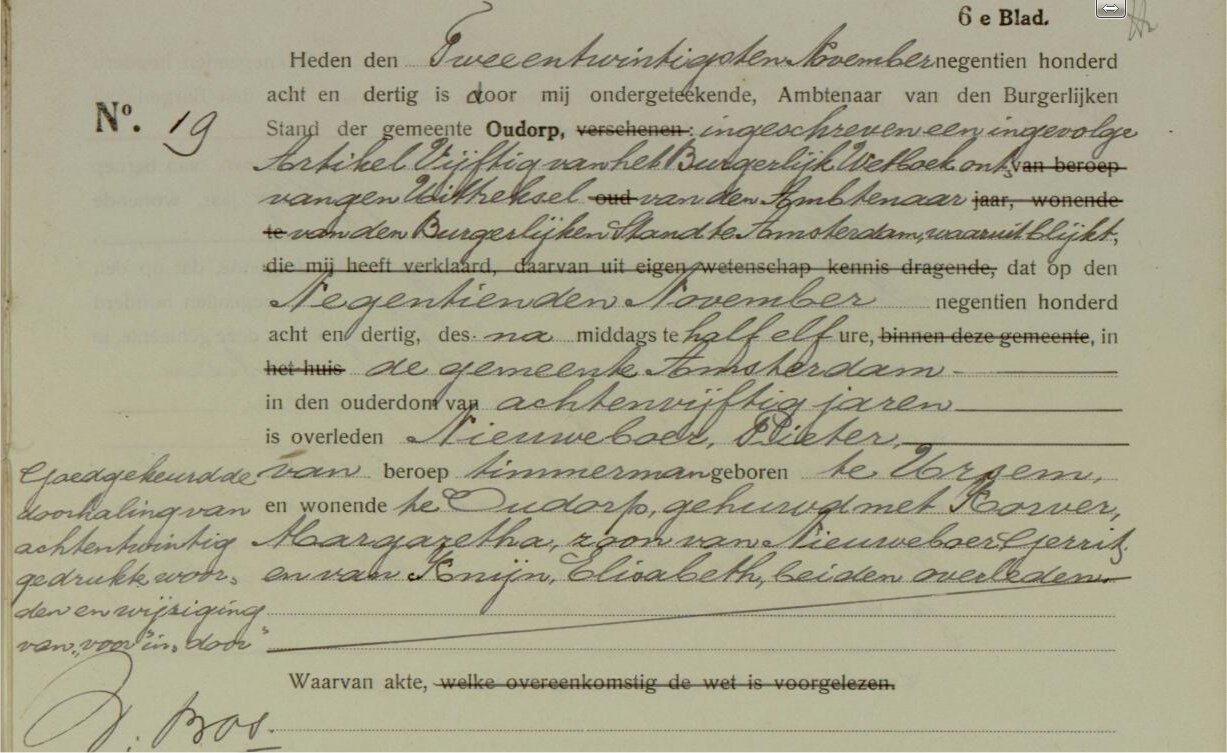 6 e Blad.
Heden den Tweeentwintigsten November negentien honderd
acht en dertig is door mij ondergeteekende, Ambtenaar van den Burgerlijken
No. 19
Stand der gemeente Oudorp, verschenen: ingeschreven een ingevolge
Artikel Vijftig van het Burgerlijk Wetboek ont„ van beroep
vangen Uittreksel oud van den Ambtenaar jaar, wonende
te van den Burgerlijken Stand te Amsterdam, waaruit blijkt,
die mij heeft verklaard, daarvan uit eigen wetenschap kennis dragende, dat op den
Negentienden November negentien honderd
acht en dertig, des na middags te half elf ure, binnen deze gemeente, in
het huis de gemeente Amsterdam
in den ouderdom van achtenvijftig jaren
is overleden Nieuweboer, Pieter,
van beroep timmerman geboren te Ursem,
en wonende te Oudorp, gehuwd met Korver,
Margaretha, zoon van Nieuweboer Gerrit,
en van Knijn, Elisabeth, beiden overleden.
Goedgekeurd de
doorhaling van
achtentwintig
gedrukte woor„
den en wijziging
van „voor” in „door”
Waarvan akte, welke overeenkomstig de wet is voorgelezen.
Bos.